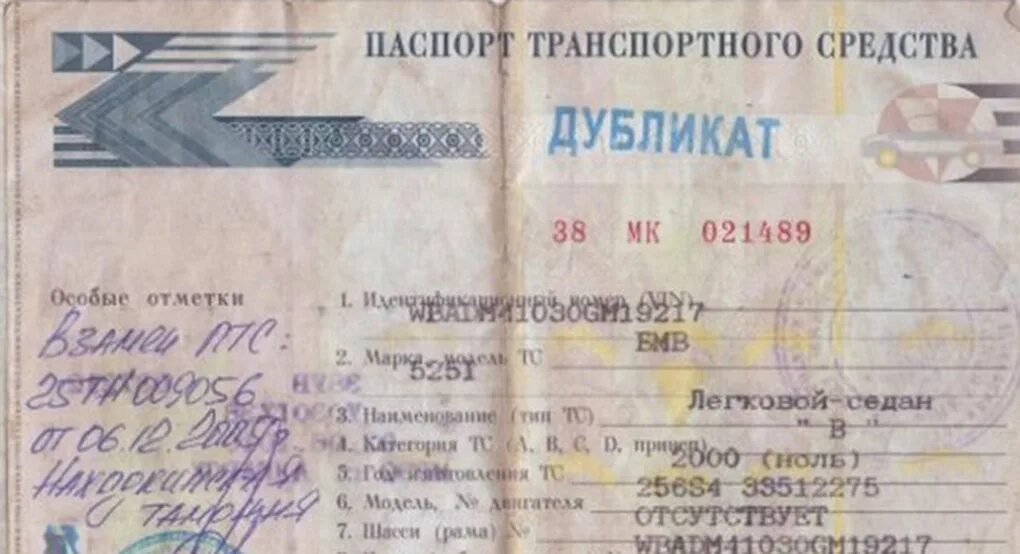 ПАСПОРТ ТРАНСПОРТНОГО СРЕДСТВА
ДУБЛИКАТ
38 МК 021489
Особые отметки
Взамен ПТС:
25ТН009056
от 06.12.
Находкинская
таможня
1. Идентификационный номер (VIN)
WBADM41030GM19217
БМВ
2. Марка, модель ТС
525I
Легковой-седан
3. Наименование (тип ТС)
" В "
4. Категория ТС (А, В, С, D, прицеп)
2000 (ноль)
5. Год изготовления ТС
256S4 33512275
6. Модель, № двигателя
ОТСУТСТВУЕТ
7. Шасси (рама) №
WBADM41030GM19217